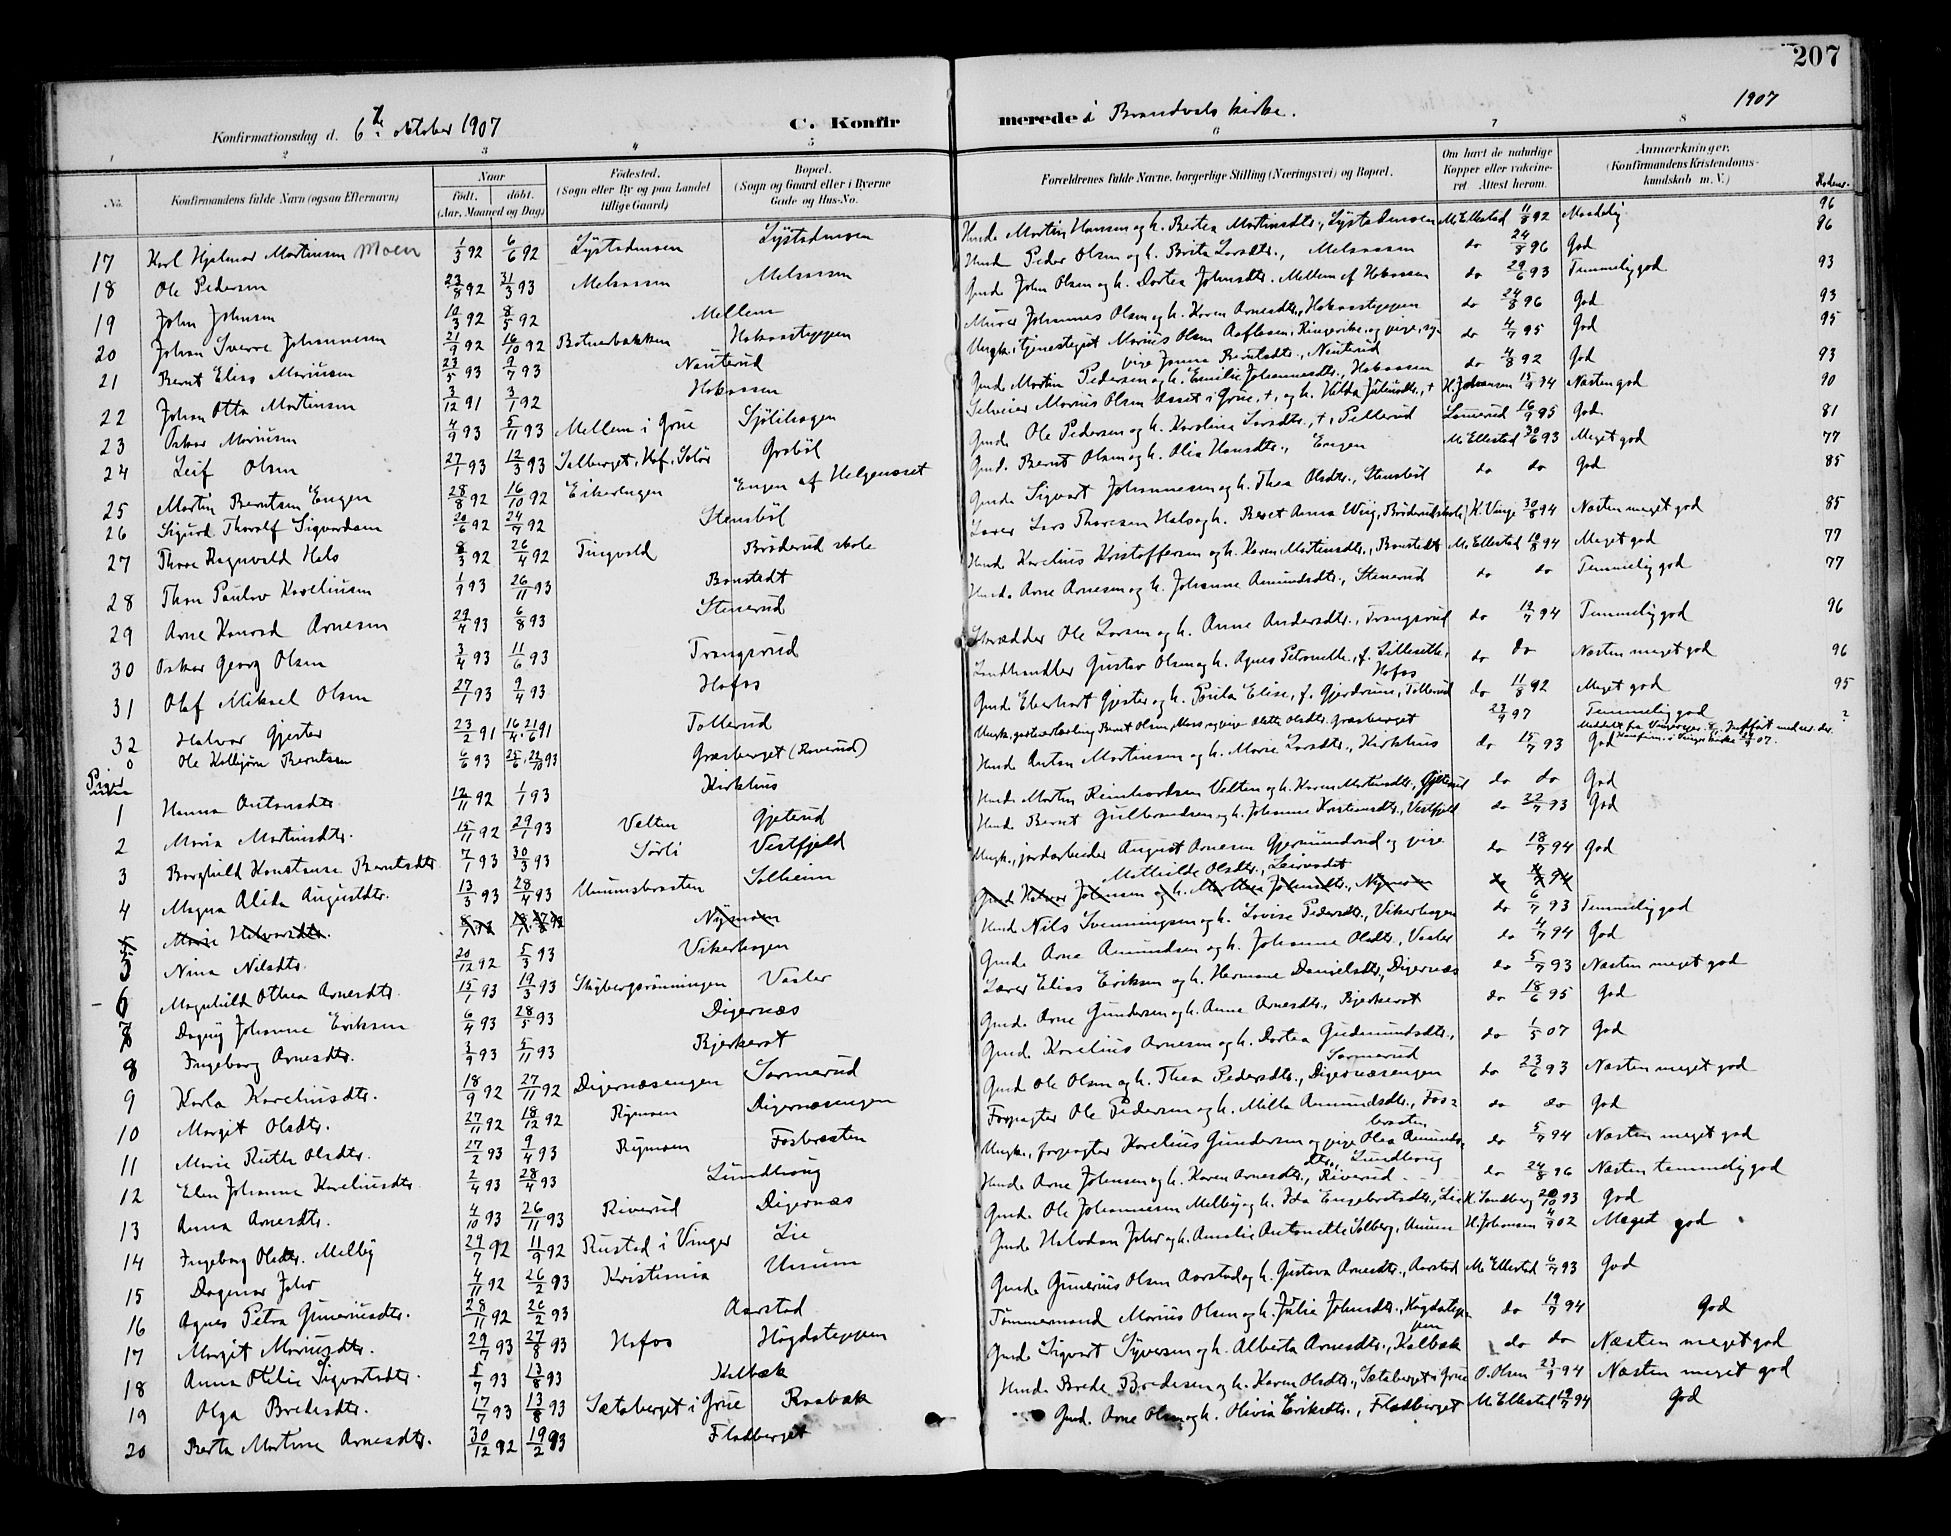 207
Konfirmationsdag d. 6te oktober 1907
C. Konfirmerede i Brandvals kirke.
1907
1 2 3 4 5 6 7 8
No. Konfirmandens fulde Navn (ogsaa Efternavn) Naar født. døbt. (Aar, Maaned og Dag) Fødested. (Sogn eller By og paa Landet tillige Gaard) Bopæl. (Sogn og Gaard eller i Byerne Gade og Hus-No. Forældrenes fulde Navne, borgerlige Stilling (Næringsvei) og Bopæl. Om havt de naturlige Kopper eller vakcineret Attest herom. Anmærkninger. (Konfirmandens Kristendomskundskab m. V.)
17 Karl Hjalmar Martinsen Moen 1/3 92 6/6 92 Lystadmoen Lystadmoen Martin Hansen og h. Bertea Martinsdtr., Lystadmoen M. Ellestad 11/8 92 Maadelig 96
18 Ole Pedersen 23/8 92 31/3 93 Melsnessen Melsnessen Peder Olsen og h. Berte Larsdtr., do 24/8 96 God 86
19 John Johnsen 10/3 92 8/5 92 Mellem Gmd. John Olsen og h. Dortea Johnsdtr. Mellem af Hokaasen do 29/6 93 Temmelig god 93
20 Johan Sverre Johannesen 21/9 92 16/10 92 Botnerbakken Hokaasteppen Murer Johannes Olsen og h. Karen Arnesdtr., Hokaasteppen do 24/8 96 God 93
21 Bernt Elias Mariusen 23/5 93 9/7 93 Nauterud Ungk., tjenestegut Marius Olsen do 4/7 95 God 95
22 Johan Otto Martinsen 3/12 91 3/1 92 Hokaasen Gmd. Martin Pedersen og h. Emilie Johannesdtr., Hokaasen do 4/8 92 God 93
23 Oskar Mariusen 4/9 93 5/11 93 Mellem i Grue Sjølihagen Selveier Marius Olsen i Grue, †, og h. Hilda Juliusdtr., † H. Johansen 15/9 94 Næsten god 90
24 Leif Olsen 27/1 93 12/3 93 Solberget, Hof, Solør Grabøl Gmd. Ole Pedersen og h. Karolina Larsdtr., †, Pellerud 16/9 95 God 81
25 Martin Berntsen Engen 28/8 92 16/10 92 Eikerengen Engen af Helgenæset Gmd. Bernt Olsen og h. Olia Hansdtr., Engen M. Ellestad 30/6 93 Meget god 77
26 Sigurd Thoralf Sigvardsen 20/6 92 24/7 92 Stensbøl Gmd. Sigvart Johannesen og h. Thea Olsdtr., Stensbøl do do God 85
27 Thore Ragnvald Hals 8/3 92 26/4 92 Tingvold Brøderud skole Lærer Lars Thoresen Hals og h. Beret Anna Wiig, Brøderud skole K. Vinge 30/8 94 Næsten meget god 85
28 Thor Paulov Kareliusen 1/9 93 26/11 93 Bonstedt Karelius Kristoffersen og h. Karen Martinsdtr., Bonstedt M. Ellestad 10/8 94 Meget god 77
29 Arne Konrad Arnesen 29/4 93 6/8 93 Stenerud Arne Arnesen og h. Johanne Amundsdtr., Stenerud do do Temmelig god 77
30 Oskar Georg Olsen 3/4 93 11/6 93 Trangsrud Skrædder Ole Larsen og h. Anne Andersdtr., Trangsrud do 19/7 94 Temmelig god 96
31 Olaf Mikael Olsen 27/1 93 9/4 93 Hofos Landhandler Gustav Olsen og h. Agnes Petronelle, f. Lilleseth, Hofos do do Næsten meget god 96
32 Halvor Gjester 23/2 91 16/4 21/6 91 Tollerud Gmd. Eberhart Gjester og h. Paula Elise, f. Gjerdrum, Tollerud do 11/8 92 Meget god 95
0 Ole Kolbjørn Berntsen 6/6 93 25/6 . 22/10 93 Græsberget (Roverud) 23/9 97 Temmelig god
Piger
1 Hanna Antonsdtr. 12/11 92 1/1 93 Kirkhus Anton Martinsen og h. Marie Larsdtr., Kirkhus do 15/7 93 God
2 Maria Martinsdtr. 15/11 92 29/1 93 Velten Gjeterud Martin Reinhardsen Velten og h. Karen Martinsdtr., Gjeterud do do God
3 Borghild Konstanse Berntsdtr. 7/1 93 30/3 93 Sørli Vestfjeld Bernt Gulbrandsen og h. Johanne Kristiansdtr., Vestfjeld do 22/7 93 God
4 Magna Alida Augustdtr. 13/3 93 28/4 93 Unumsbraaten Solheim Ungk., jordarbeider August Arnesen Gjermundrud og pige Mathilde Olsdtr. do 18/7 94 God
5 Marie Halvorsdtr. Nymoen Gmd. Halvor Johnsen og h. Marthea Johnsdtr., Nymoen
5 Nina Nilsdtr. 20/12 92 5/3 93 Vikerhagen Nils Svenningsen og h. Lovise Pedersdtr., Vikerhagen do 6/7 93 Temmelig god
6 Magnhild Othea Arnesdtr. 15/1 93 19/3 93 Skybergsrønningen Vasler Gmd. Arne Amundsen og h. Johanne Olsdtr., Vasler do 4/7 94 God
7 Dagny Johanne Eriksen 6/4 93 28/5 93 Digernæs Lærer Elias Eriksen og h. Hermane Danielsdtr., Digernæs do 5/7 93 Næsten meget god
8 Ingeborg Arnesdtr. 3/9 93 5/11 93 Bjerkerot Gmd. Arne Gundersen og h. Anne Arnesdtr., Bjerkerot do 18/6 95 God
9 Karla Kareliusdtr. 18/9 92 27/11 92 Digernæsengen Sormerud Gmd. Karelius Arnesen og h. Dortea Gudmundsdtr., Sormerud do 1/5 07 God
10 Margit Olsdtr. 27/11 92 18/12 92 Rymoen Digernæsengen Gmd Ole Olsen og h. Thea Pedersdtr., Digernæsengen do 23/6 93 Næsten meget god
11 Marie Ruth Olsdtr. 27/2 93 9/4 93 Rymoen Fosbraaten Forpagter Ole Pedersen og h. Milla Amundsdtr., Fosbraaten do do God
12 Elen Johanne Kareliusdtr. 2/4 93 28/4 93 Lundhaug Ungk., forpagter Karelius Gundersen og pige Olea Amundsdtr., Lundhaug do 5/7 94 Næsten meget god
13 Anna Arnesdtr. 4/10 93 26/11 93 Riverud Digernæs Arne Johnsen og h. Karen Arnesdtr., Riverud do 24/8 96 Næsten temmelig god
14 Ingeborg Olsdtr. Melby 29/7 92 11/9 92 Rustad i Vinger Lie Gmd. Ole Johannesen Melby og h. Ida Engebretsdtr., Lie K. Sandberg 20/10 93 God
15 Dagmar Jahr 4/11 92 26/2 93 Kristiania Unum Gmd. Halvdan Jahr og h. Amalie Antonette Solberg, Unum H. Johansen 4/9 02 Meget god
16 Agnes Petra Guneriusdtr. 28/11 92 26/2 93 Aarstad Gmd. Gunerius Olsen Aarstad og h. Gustava Arnesdtr., Aarstad M. Ellestad 6/7 93 God
17 Margit Mariusdtr. 29/7 93 27/8 93 Hofos Høgdateppen Tømmermand Marius Olsen og h. Julie Johnsdtr., Høgdateppen do 19/7 94 God
18 Anna Otilie Sigvartsdtr. 5/7 93 13/8 93 Kalbæk Gmd. Sigvart Syversen og h. Alberta Arnesdtr., Kalbæk do do Næsten meget god
19 Olga Bredesdtr. 17/7 93 13/8 93 Sætaberget i Grue Raabæk Brede Bredesen og h. Karen Olsdtr., Sætaberget i Grue O. Olsen 23/9 94 Næsten meget god
20 Berta Martine Arnesdtr. 30/12 92 19/2 93 Fladberget Gmd. Arne Olsen og h. Olivia Eriksdtr., Fladberget M. Ellestad 19/7 94 God